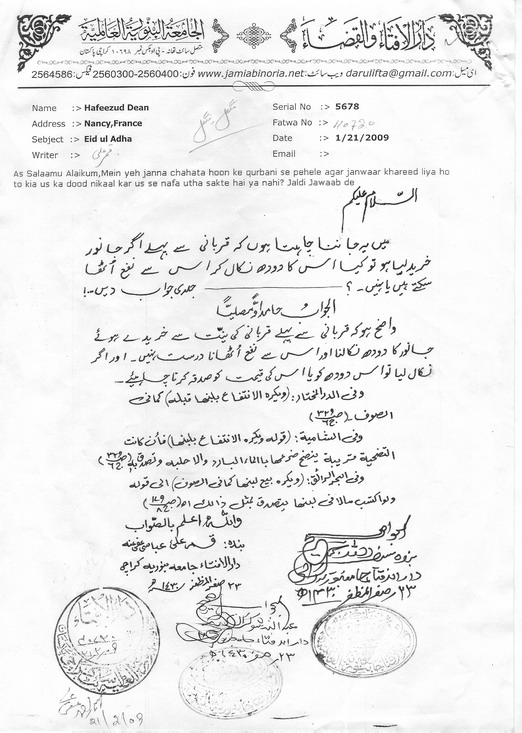 دارالافتاء والقضاء
الجامعة البنورية العالمية
متصل سائٹ تھانہ - پی او بکس نمبر ۱۰۶۹۸ کراچی پاکستان
ای میل: darulifta@gmail.com ویب سائٹ: www.jamiabinoria.net فون: 2560300-2560400 فیکس: 2564586
Name :> Hafeezud Dean
Serial No :> 5678
Address :> Nancy,France
Fatwa No :>
Sebject :> Eid ul Adha
Date :> 1/21/2009
Writer :>
Email :>
As Salaamu Alaikum,Mein yeh janna chahata hoon ke qurbani se pehele agar janwaar khareed liya ho
to kia us ka dood nikaal kar us se nafa utha sakte hai ya nahi? Jaldi Jawaab de
السلام علیکم
میں یہ جاننا چاہتا ہوں کہ قربانی سے پہلے اگر جانور
خرید لیا ہو تو کیا اس کا دودھ نکال کر اس سے نفع اُٹھا
سکتے ہیں یا نہیں۔ ؟ جلدی جواب دیں۔۔!
الجواب حامداً ومصلیاً
واضح ہو کہ قربانی سے پہلے قربانی کی نیت سے خریدے ہوئے
جانور کا دودھ نکالنا اور اس سے نفع اُٹھانا درست نہیں۔ اور اگر
نکال لیا تو اس دودھ کو یا اس کی قیمت کو صدقہ کرنا چاہیئے۔
وفی الدر المختار: (ویکرہ الانتفاع بلبنها قبله) کما فی
الصوف۔
وفی الشامیة: (قوله ویکرہ الانتفاع بلبنها) فإن کانت
التضحیة قریبة ینضح ضرعها بالماء البارد والا حلبه وتصدق به
وفی البحر الرائق: (ویکرہ بیع لبنها کما فی الصوف) الی قوله
ولو اکتسب مالا من لبنها یتصدق بمثل ذالك اھ
واللہ اعلم بالصواب
بندہ: قمر علی عباسی عفی عنه
دارالافتاء جامعہ بنوریہ کراچی
۲۳ صفر المظفر ۱۴۳۰ھ
۲۳ صفر المظفر ۱۴۳۰ھ
۲۳ صفر ۱۴۳۰ھ
دار الافتاء